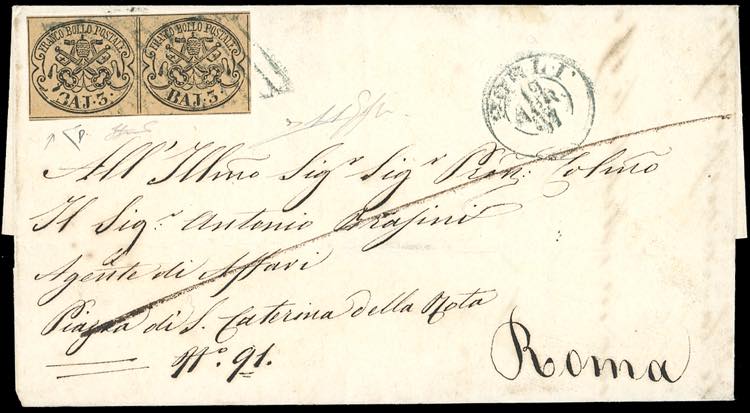 FRANCO BOLLO POSTALE FRANCO BOLLO POSTALE
BAJ. 3. BAJ. 3.
FORLI
19
57
All' Illmo Sigr Sigr Pron Colmo
Il Sigr. Antonio Frasini
Agente di Affari
Piazza di S. Caterina della Rota
No. 91.
Roma